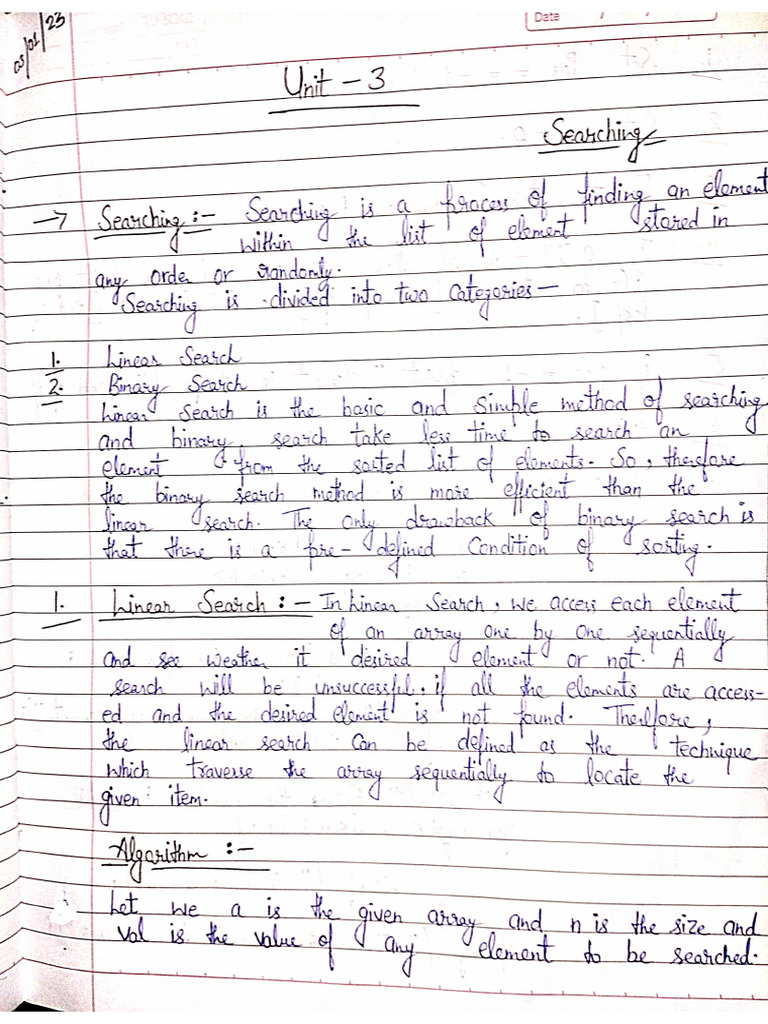 03/01/23
Date
Unit - 3
Searching
→ Searching :- Searching is a process of finding an element
within the list of element stored in
any order or randomly.
Searching is divided into two categories -
1. Linear Search
2. Binary Search
Linear Search is the basic and simple method of searching
and binary search take less time to search an
element from the sorted list of elements. So, therefore
the binary search method is more efficient than the
linear search. The only drawback of binary search is
that there is a pre-defined Condition of sorting.
1. Linear Search :- In Linear Search, we access each element
of an array one by one sequentially
and see weather it desired element or not. A
search will be unsuccessful, if all the elements are access-
ed and the desired element is not found. Therefore,
the linear search Can be defined as the technique
which traverse the array sequentially to locate the
given item.
Algorithm :-
Let we a is the given array and n is the size and
val is the value of any element to be searched.